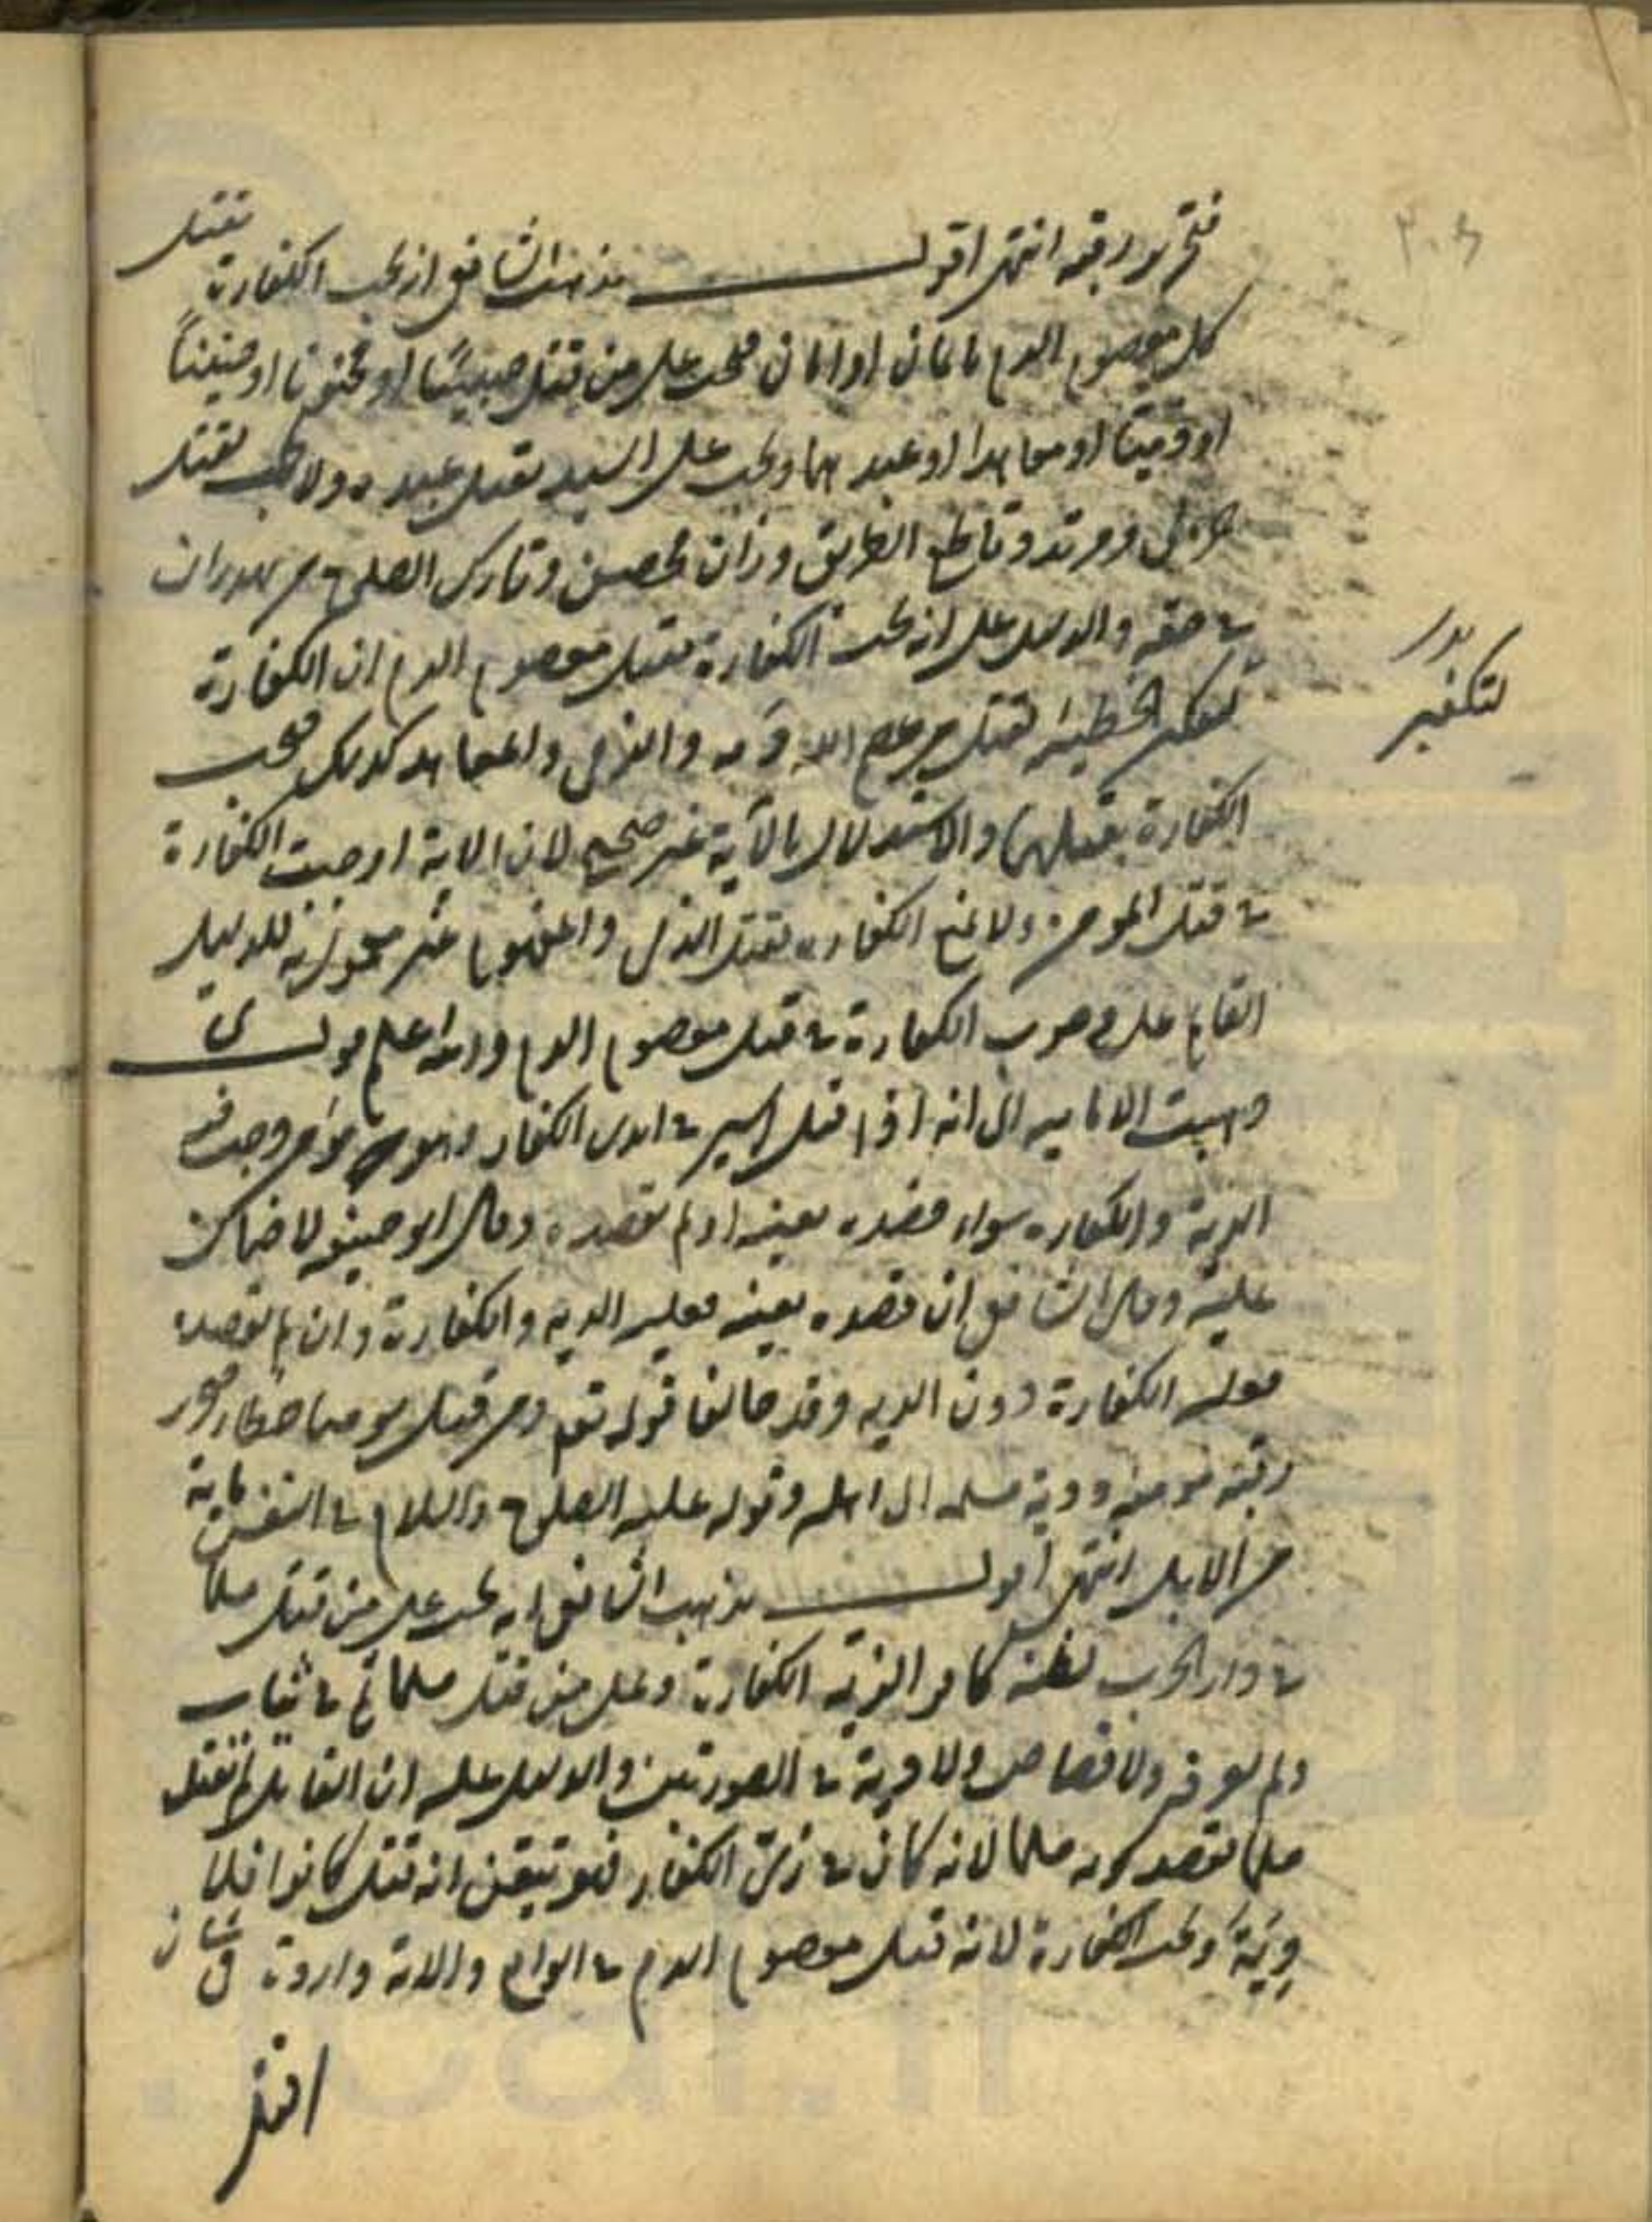 فتحرير رقبة انتهى اقول مذهب الشافعي انه يجب الكفارة بقتل
كل معصوم الدم بايمان او امان فيجب على من قتل صبيا او مجنونا او جنينا
او ذميا او معاهدا او عبدهما ويجب على السيد بقتل عبده ولا يجب بقتل
حربي ومرتد وقاطع الطريق وزان محصن وتارك الصلوة
في حقه والدليل على انه يجب الكفارة بقتل معصوم الدم ان الكفارة
لتكفير
الخطيئة بقتل من عصم الله دمه والذمي والمعاهد كذلك فيجب
الكفارة بقتلهما والاستدلال بالآية غير صحيح لان الاية اوجبت الكفارة
في قتل المومن ولا تمنع الكفارة بقتل الذمي والمفهوم غير معمول به للدليل
القايم على وجوب الكفارة في قتل معصوم الدم والله اعلم قال
ذهبت الامامية الى انه اذا قتل اسير في ايدي الكفار وهو مؤمن وجبت فيه
الدية والكفارة سواء قصده بعينه او لم يقصده وقال ابو حنيفة لا ضمان
عليه وقال الشافعي ان قصده بعينه فعليه الدية والكفارة وان لم يقصده
فعليه الكفارة دون الدية وقد خالفا قوله تعم ومن قتل مومنا خطا فتحرير
رقبة مومنة ودية مسلمة الى اهله وقوله عليه الصلوة والسلام في النفس مائة
من الابل انتهى اقول مذهب الشافعي انه يجب على من قتل مسلما
في دار الحرب بظنه كافرا لزيه الكفارة وعلى من قتل مسلما
ولم يعرف ولا قصاص ولا دية في الصورتين والدليل عليه ان القاتل لم يقتل
مسلما بقصد كونه مسلما لانه كان في زي الكفار فهو تيقن انه قتل كافرا فلا
دية ويجب الكفارة لانه قتل معصوم الدم في الواقع والاية واردة في شان